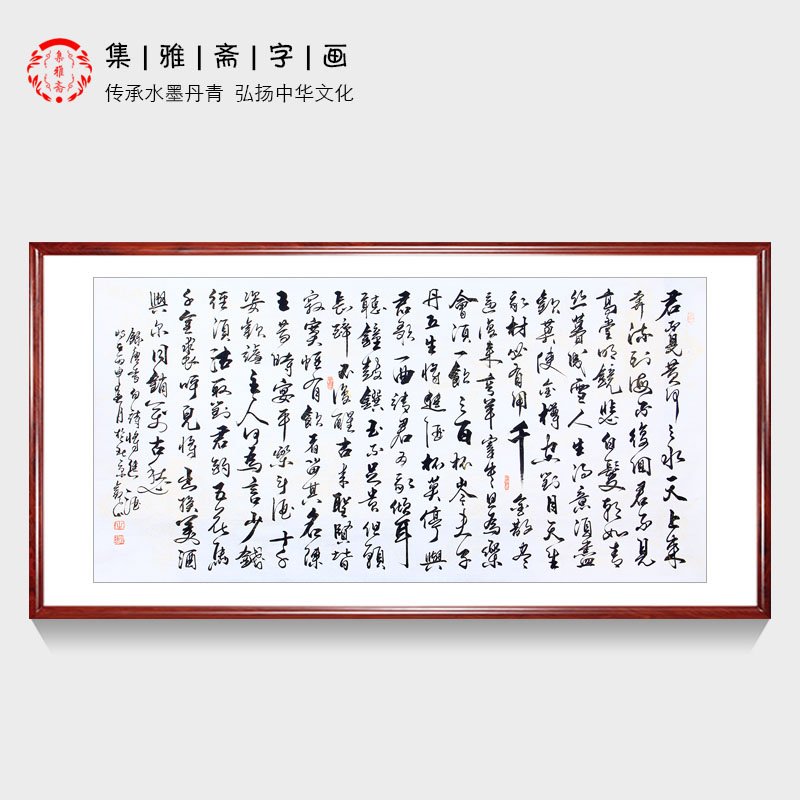 集雅斋
集|雅|斋|字|画
传承水墨丹青 弘扬中华文化
君不見黄河之水天上來
奔流到海不復回君不見
高堂明鏡悲白髮朝如青
絲暮成雪人生得意須盡
歡莫使金樽空對月天生
我材必有用千金散盡
還復來烹羊宰牛且為樂
會須一飲三百杯岑夫子
丹丘生將進酒杯莫停與
君歌一曲請君為我傾耳
聽鐘鼓饌玉不足貴但願
長醉不復醒古來聖賢皆
寂寞惟有飲者留其名陳
王昔時宴平樂斗酒十千
恣歡謔主人何為言少錢
徑須沽取對君酌五花馬
千金裘呼兒將出換美酒
與爾同銷萬古愁
錄唐李白詩將進酒
丙申年春月於北京